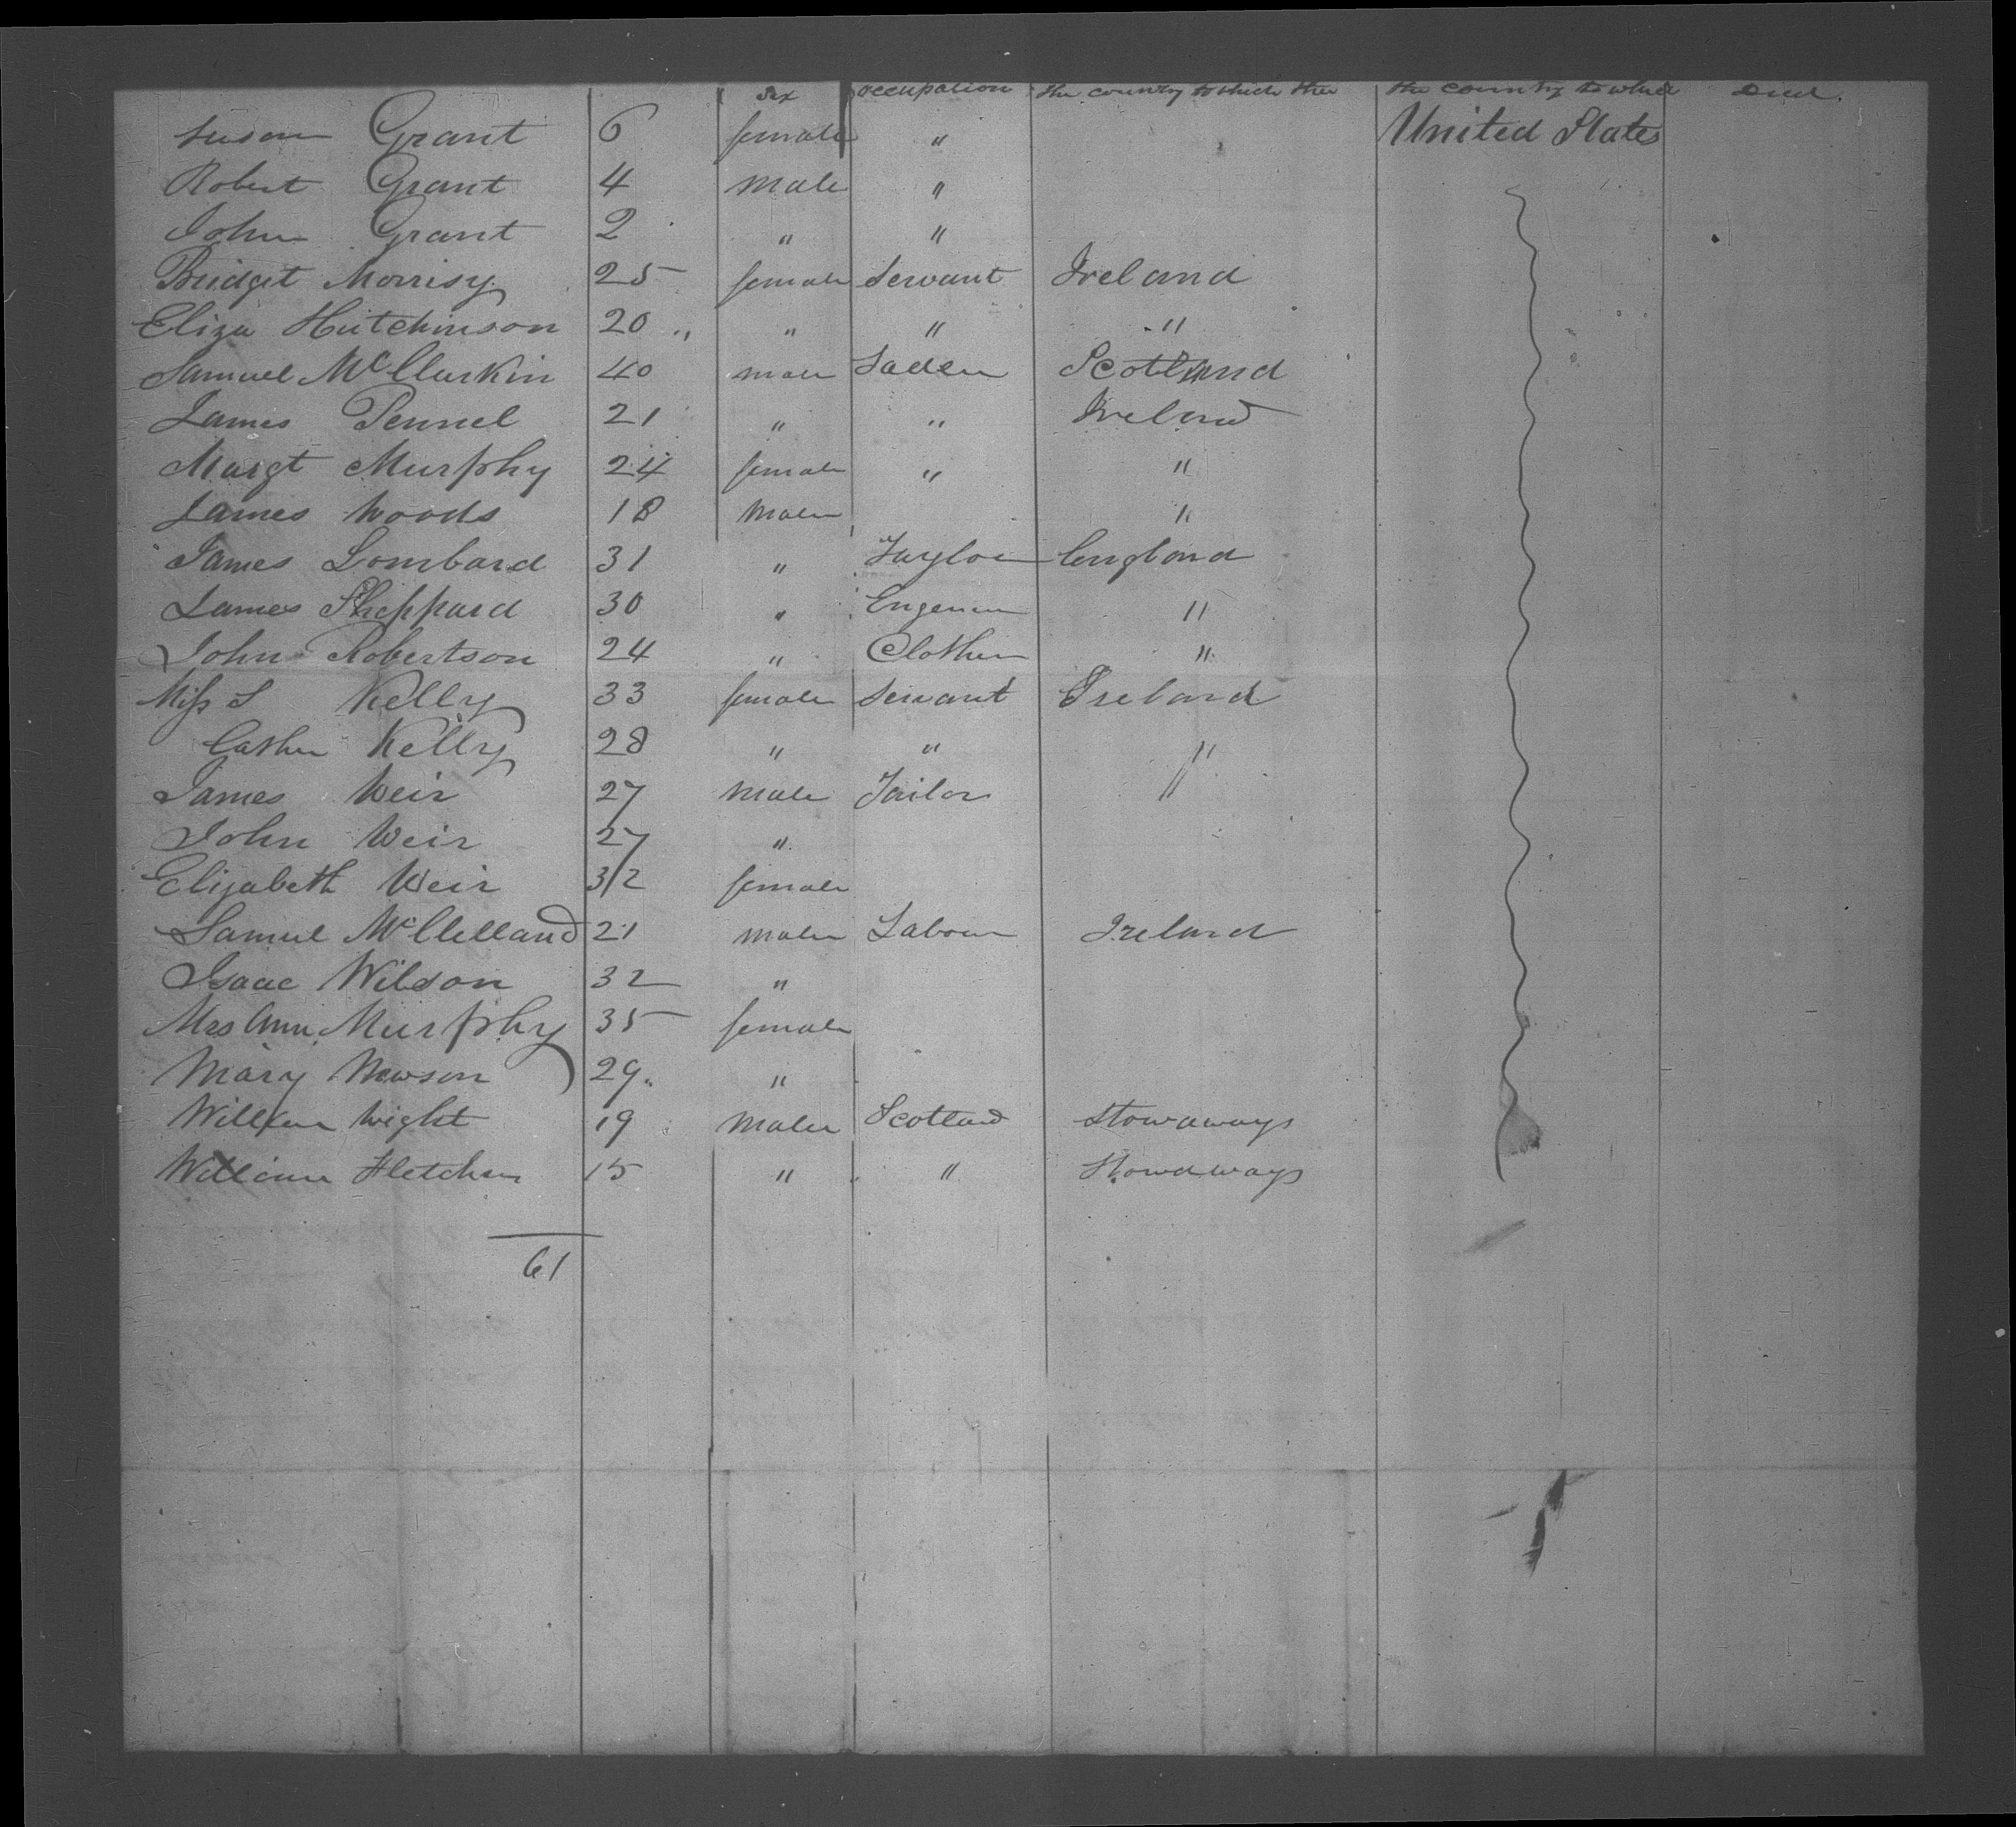 Sex occupation the country to which they the country to which Died
Susan Grant 6 female " United States
Robert Grant 4 male "
John Grant 2 " "
Bridget Morrisy 25 female Servant Ireland
Eliza Hutchinson 20 " " " "
Samuel McClurkin 40 male Scotland
James Pennel 21 " " Ireland
Margt Murphy 24 female " "
James Woods 18 Male "
James Lombard 31 " Taylor England
James Sheppard 30 " "
John Robertson 24 " Clother "
Miss S Kelly 33 female Servant Ireland
Cather Kelly 28 " " "
James Weir 27 Male Tailor "
John Weir 27 "
Elizabeth Weir 3/2 female
Samuel McClelland 21 male Labour Ireland
Isaac Wilson 32 "
Mrs Ann Murphy 35 female
Mary Mawson 29 "
William Wight 19 Male Scotland Stowaways
William Fletcher 15 " " Stowaways
61